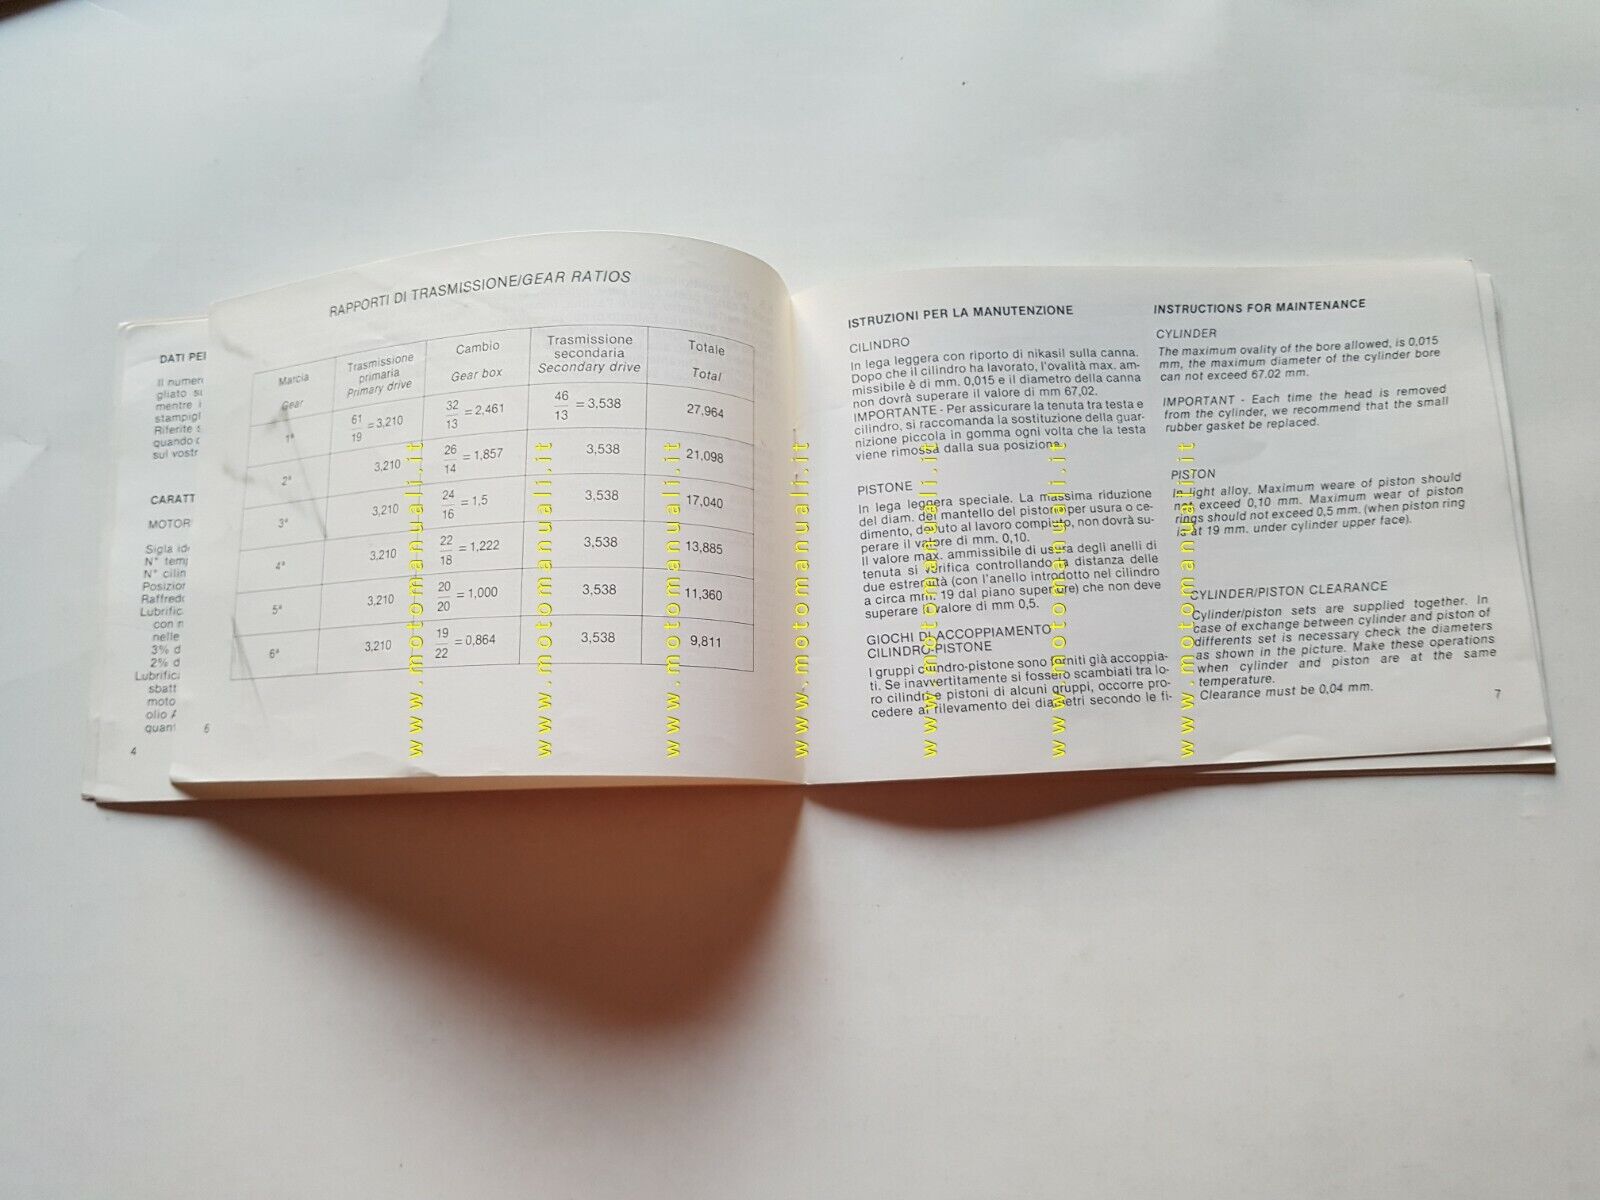 DATI PER
Il numer
gliato su
mentre i
stampigl
Riferite s
quando c
sul vostr
CARATT
MOTOR
Sigla ide
N° temp
N° cilin
Posizion
Raffredo
Lubrific
con n
nelle
3% d
2% d
Lubrifici
sbatt
moto
olio A
quan
4
6
RAPPORTI DI TRASMISSIONE/GEAR RATIOS
Marcia Gear
Trasmissione primaria Primary drive
Cambio Gear box
Trasmissione secondaria Secondary drive
Totale Total
1ª 61/19 = 3,210 32/13 = 2,461 46/13 = 3,538 27,964
2ª 3,210 26/14 = 1,857 3,538 21,098
3ª 3,210 24/16 = 1,5 3,538 17,040
4ª 3,210 22/18 = 1,222 3,538 13,885
5ª 3,210 20/20 = 1,000 3,538 11,360
6ª 3,210 19/22 = 0,864 3,538 9,811
ISTRUZIONI PER LA MANUTENZIONE
CILINDRO
In lega leggera con riporto di nikasil sulla canna.
Dopo che il cilindro ha lavorato, l'ovalità max. am-
missibile è di mm. 0,015 e il diametro della canna
non dovrà superare il valore di mm 67,02.
IMPORTANTE - Per assicurare la tenuta tra testa e
cilindro, si raccomanda la sostituzione della guar-
nizione piccola in gomma ogni volta che la testa
viene rimossa dalla sua posizione.
PISTONE
In lega leggera speciale. La massima riduzione
del diam. del mantello del pistone per usura o ce-
dimento, dovuto al lavoro compiuto, non dovrà su-
perare il valore di mm. 0,10.
Il valore max. ammissibile di usura degli anelli di
tenuta si verifica controllando la distanza delle
due estremità (con l'anello introdotto nel cilindro
a circa mm. 19 dal piano superiore) che non deve
superare il valore di mm 0,5.
GIOCHI DI ACCOPPIAMENTO
CILINDRO-PISTONE
I gruppi cilindro-pistone sono forniti già accoppia-
ti. Se inavvertitamente si fossero scambiati tra lo-
ro cilindri e pistoni di alcuni gruppi, occorre pro-
cedere al rilevamento dei diametri secondo le fi-
INSTRUCTIONS FOR MAINTENANCE
CYLINDER
The maximum ovality of the bore allowed, is 0,015
mm, the maximum diameter of the cylinder bore
can not exceed 67.02 mm.
IMPORTANT - Each time the head is removed
from the cylinder, we recommend that the small
rubber gasket be replaced.
PISTON
In light alloy. Maximum weare of piston should
not exceed 0,10 mm. Maximum wear of piston
rings should not exceed 0,5 mm. (when piston ring
is at 19 mm. under cylinder upper face).
CYLINDER/PISTON CLEARANCE
Cylinder/piston sets are supplied together. In
case of exchange between cylinder and piston of
differents set is necessary check the diameters
as shown in the picture. Make these operations
when cylinder and piston are at the same
temperature.
Clearance must be 0,04 mm.
7
www.motomanuali.it
www.motomanuali.it
www.motomanuali.it
www.motomanuali.it
www.motomanuali.it
www.motomanuali.it
www.motomanuali.it